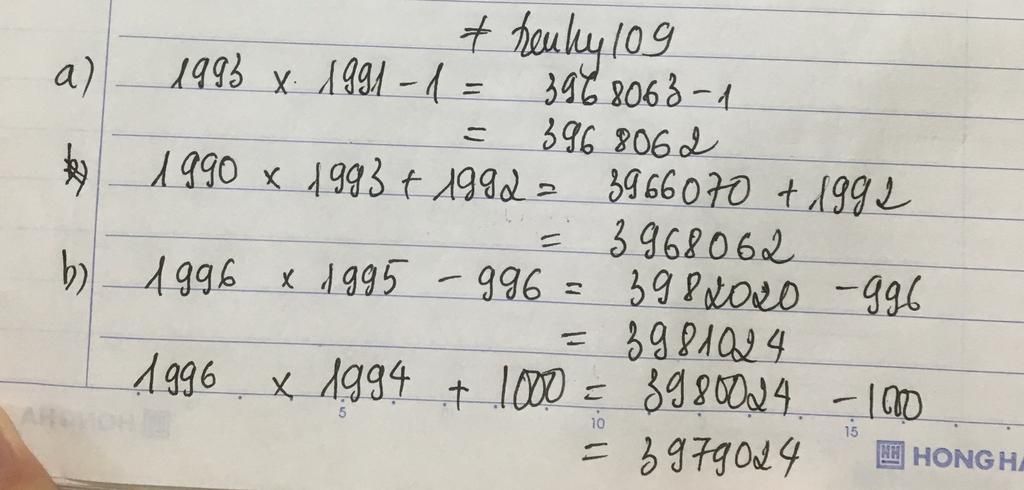 ≠ heuhy109
a) 1993 x 1991 - 1 = 3968063 - 1
= 3968062
1990 x 1993 + 1992 = 3966070 + 1992
= 3968062
b) 1996 x 1995 - 996 = 3982020 - 996
= 3981024
1996 x 1994 + 1000 = 3980024 - 1000
= 3979024
5 10 15
HONG HA